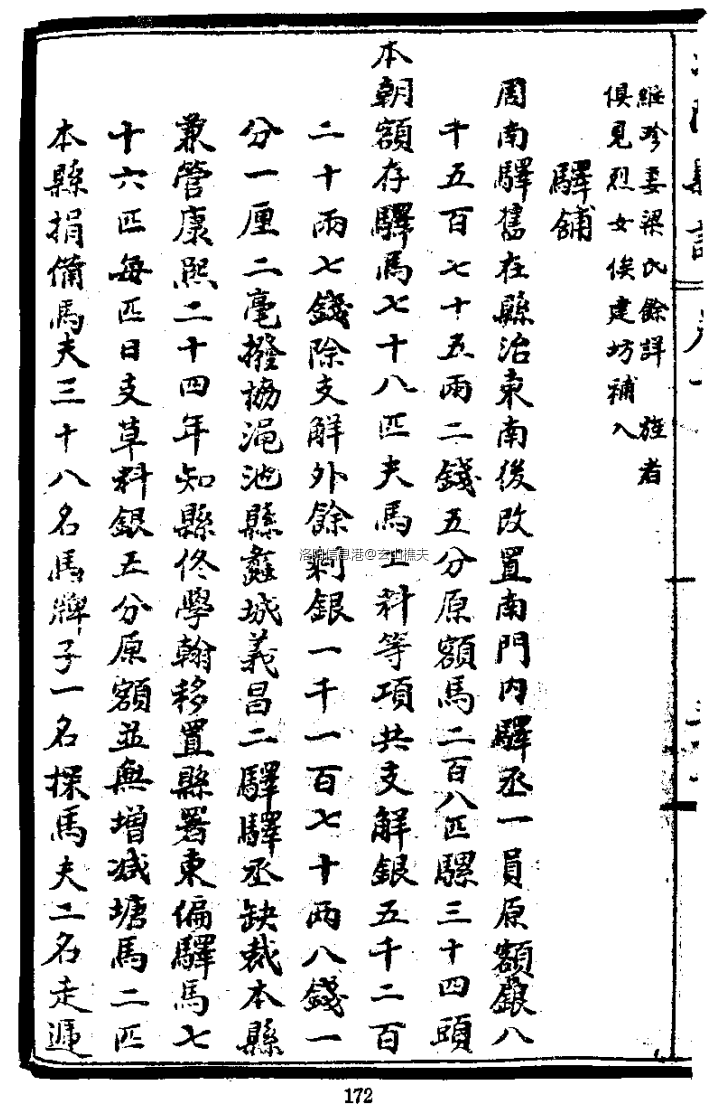 維珍妻梁氏餘詳 旌者
俱見烈女俟建坊補入
驛舖
周南驛舊在縣治東南後改置南門内驛丞一員原額銀八
千五百七十五兩二錢五分原額馬二百八匹騾三十四頭
本朝額存驛馬七十八匹夫馬工料等項共支解銀五千二百
二十兩七錢除支解外餘剩銀一千一百七十兩八錢一
分一厘二毫撥協澠池縣蠡城義昌二驛驛丞缺裁本縣
兼管康熙二十四年知縣佟學翰移置縣署東偏驛馬七
十六匹每匹日支草料銀五分原額並無增减塘馬二匹
本縣捐備馬夫三十八名馬牌子一名探馬夫二名走遞
洛陽信息港@玄山樵夫
172